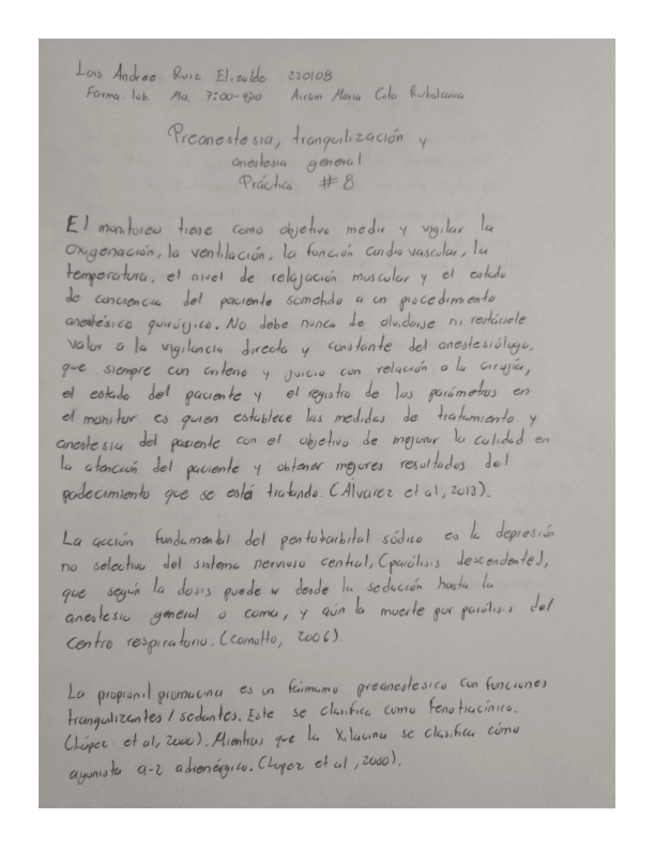 Luis Andree Ruiz Elizalde 220108
Farma. lab. Ma. 7:00-9:00 Airam Maria Coto Rubalcava
Preanestesia, tranquilización y
anestesia general
Práctica #8
El monitoreo tiene como objetivo medir y vigilar la
oxigenación, la ventilación, la función cardiovascular, la
temperatura, el nivel de relajación muscular y el estado
de conciencia del paciente sometido a un procedimiento
anestésico quirúrgico. No debe nunca de olvidarse ni restársele
valor a la vigilancia directa y constante del anestesiólogo,
que siempre con criterio y juicio con relación a la cirugía,
el estado del paciente y el registro de los parámetros en
el monitor es quien establece las medidas de tratamiento y
anestesia del paciente con el objetivo de mejorar la calidad en
la atención del paciente y obtener mejores resultados del
padecimiento que se está tratando. (Álvarez et al, 2013).
La acción fundamental del pentobarbital sódico es la depresión
no selectiva del sistema nervioso central, (parálisis descendente),
que según la dosis puede ir desde la sedación hasta la
anestesia general o coma, y aún la muerte por parálisis del
centro respiratorio. (Comotto, 2006).
La propionil promacina es un fármamo preanestesico con funciones
tranquilizantes / sedantes. Este se clasifica como fenotiacínico.
(López et al, 2000). Mientras que la Xilacina se clasifica cómo
agonista a-2 adrenérgico. (Lopez et al, 2000).